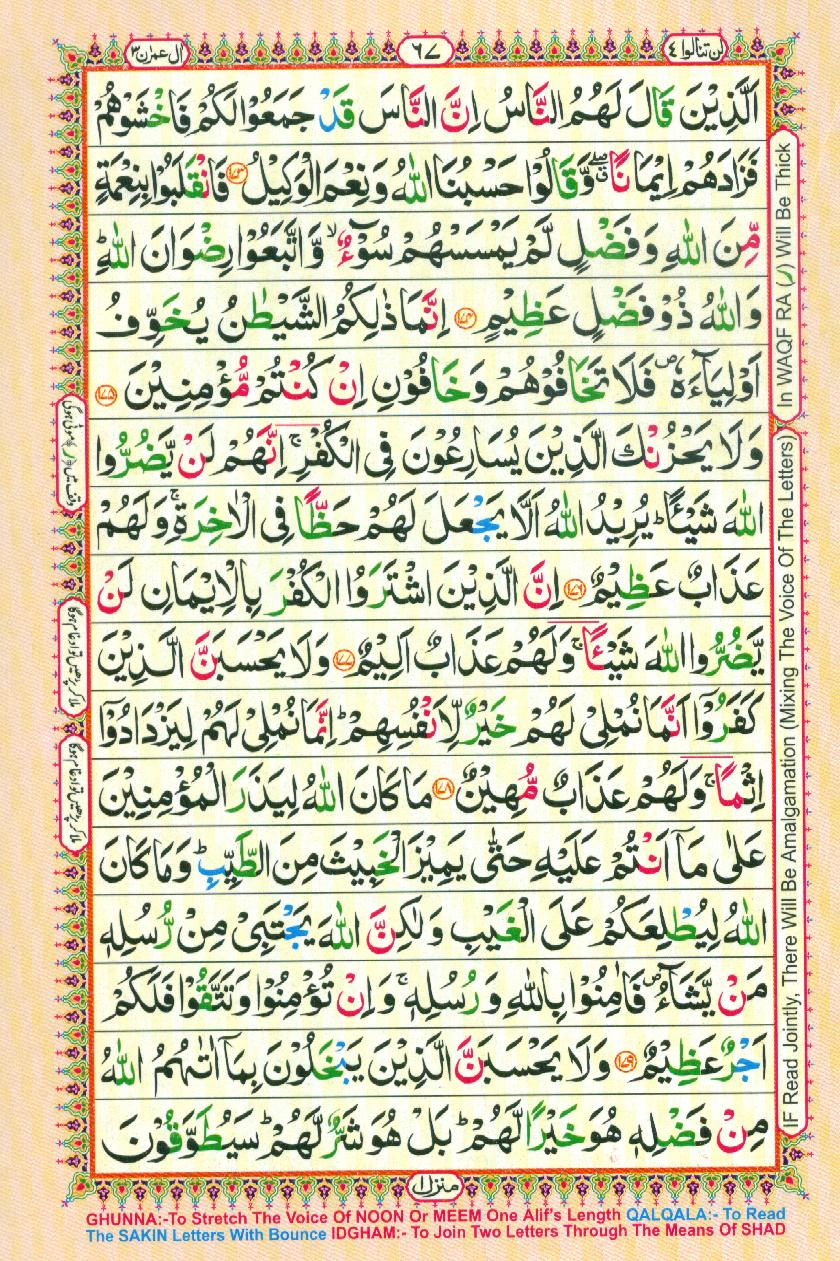 لن تنالوا ٤
٦٧
ال عمرٰن ٣
الَّذِیْنَ قَالَ لَهُمُ النَّاسُ اِنَّ النَّاسَ قَدْ جَمَعُوْا لَكُمْ فَاخْشَوْهُمْ
فَزَادَهُمْ اِیْمَانًا ۖۗ وَّقَالُوْا حَسْبُنَا اللّٰهُ وَنِعْمَ الْوَكِیْلُ ﴿۱۷۳﴾ فَانْقَلَبُوْا بِنِعْمَةٍ
مِّنَ اللّٰهِ وَفَضْلٍ لَّمْ یَمْسَسْهُمْ سُوْٓءٌ ۙ وَّاتَّبَعُوْا رِضْوَانَ اللّٰهِ ؕ
وَاللّٰهُ ذُوْ فَضْلٍ عَظِیْمٍ ﴿۱۷۴﴾ اِنَّمَا ذٰلِكُمُ الشَّیْطٰنُ یُخَوِّفُ
اَوْلِیَآءَهٗ ۪ فَلَا تَخَافُوْهُمْ وَخَافُوْنِ اِنْ كُنْتُمْ مُّؤْمِنِیْنَ ﴿۱۷۵﴾
وَلَا یَحْزُنْكَ الَّذِیْنَ یُسَارِعُوْنَ فِی الْكُفْرِ ۚ اِنَّهُمْ لَنْ یَّضُرُّوا
اللّٰهَ شَیْـًٔا ؕ یُرِیْدُ اللّٰهُ اَلَّا یَجْعَلَ لَهُمْ حَظًّا فِی الْاٰخِرَةِ ۚ وَلَهُمْ
عَذَابٌ عَظِیْمٌ ﴿۱۷۶﴾ اِنَّ الَّذِیْنَ اشْتَرَوُا الْكُفْرَ بِالْاِیْمَانِ لَنْ
یَّضُرُّوا اللّٰهَ شَیْـًٔا ۚ وَلَهُمْ عَذَابٌ اَلِیْمٌ ﴿۱۷۷﴾ وَلَا یَحْسَبَنَّ الَّذِیْنَ
كَفَرُوْۤا اَنَّمَا نُمْلِیْ لَهُمْ خَیْرٌ لِّاَنْفُسِهِمْ ؕ اِنَّمَا نُمْلِیْ لَهُمْ لِیَزْدَادُوْۤا
اِثْمًا ۚ وَلَهُمْ عَذَابٌ مُّهِیْنٌ ﴿۱۷۸﴾ مَا كَانَ اللّٰهُ لِیَذَرَ الْمُؤْمِنِیْنَ
عَلٰی مَاۤ اَنْتُمْ عَلَیْهِ حَتّٰی یَمِیْزَ الْخَبِیْثَ مِنَ الطَّیِّبِ ؕ وَمَا كَانَ
اللّٰهُ لِیُطْلِعَكُمْ عَلَی الْغَیْبِ وَلٰكِنَّ اللّٰهَ یَجْتَبِیْ مِنْ رُّسُلِهٖ
مَنْ یَّشَآءُ ۪ فَاٰمِنُوْا بِاللّٰهِ وَرُسُلِهٖ ۚ وَاِنْ تُؤْمِنُوْا وَتَتَّقُوْا فَلَكُمْ
اَجْرٌ عَظِیْمٌ ﴿۱۷۹﴾ وَلَا یَحْسَبَنَّ الَّذِیْنَ یَبْخَلُوْنَ بِمَاۤ اٰتٰىهُمُ اللّٰهُ
مِنْ فَضْلِهٖ هُوَ خَیْرًا لَّهُمْ ؕ بَلْ هُوَ شَرٌّ لَّهُمْ ؕ سَیُطَوَّقُوْنَ
منزل ١
In WAQF RA (ر) Will Be Thick
IF Read Jointly, There Will Be Amalgamation (Mixing The Voice Of The Letters)
وقف میں (ر) موٹی ہوگی
ملا کر پڑھیں تو ادغام ہوگا
ملا کر پڑھیں تو ادغام ہوگا
GHUNNA:-To Stretch The Voice Of NOON Or MEEM One Alif's Length QALQALA:- To Read
The SAKIN Letters With Bounce IDGHAM:- To Join Two Letters Through The Means Of SHAD